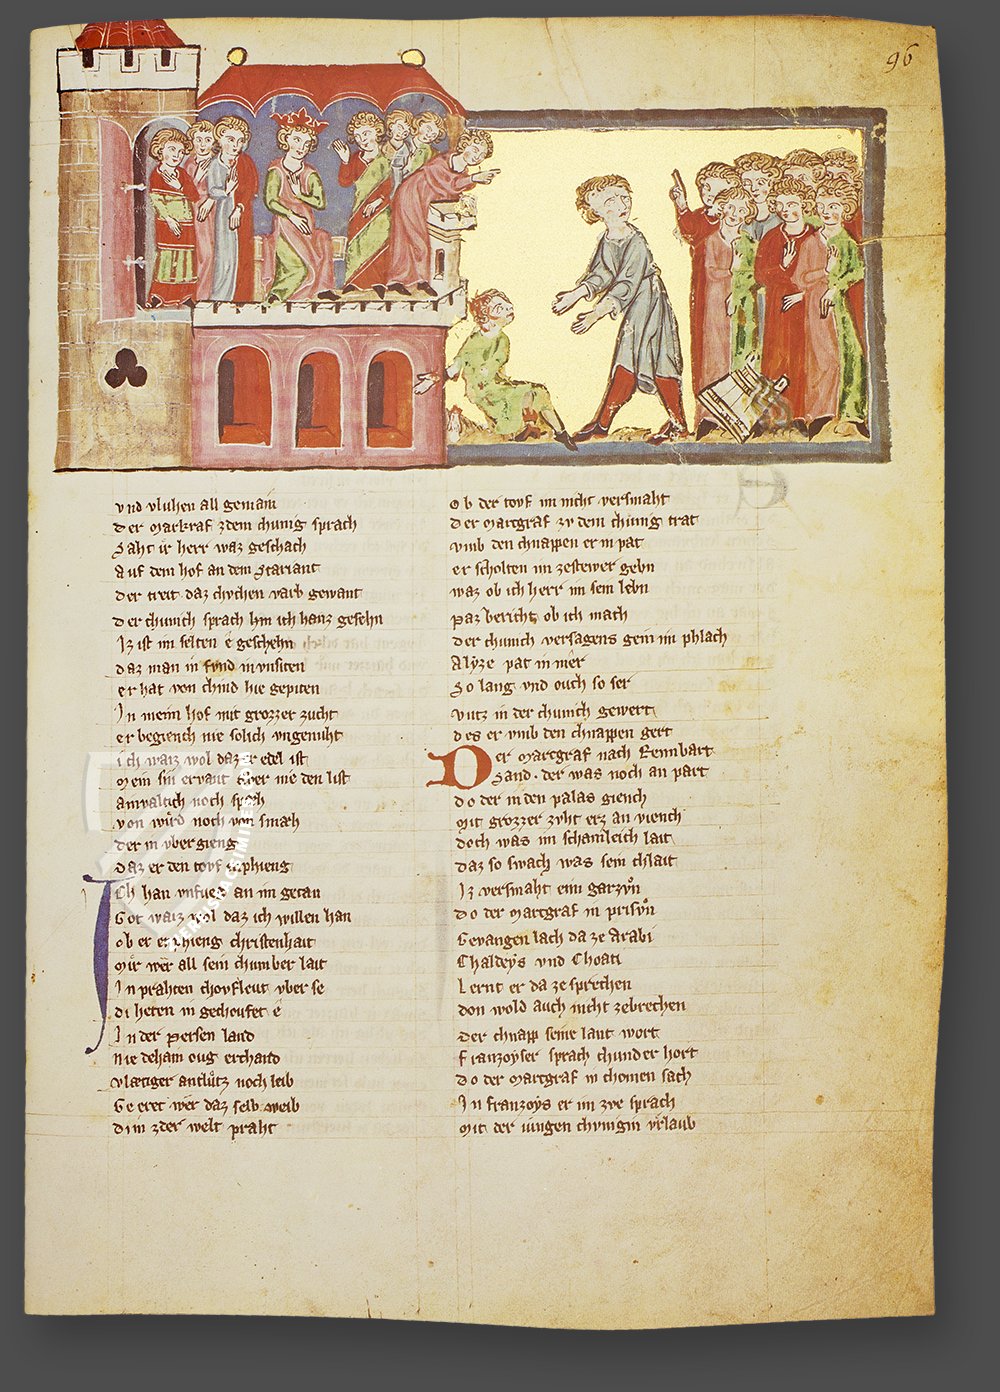 96
vnd vluhen all gemain
der markraf zdem chunig sprach
Saht ir herr waz geschach
Auf dem hof an dem Stariant
der treit daz chvchen varb gewant
der chunich sprach hin ich hanz gesehn
Iz ist im selten e geschehn
daz man in fvnd in vnsiten
er hat von chind hie gepiten
In meim hof mit grozzer zucht
er begiench nie solich vngenuht
ich waiz wol daz er edel ist
mein sin ervant aver nie den list
noch
von wird noch von smæh
der in vbergieng
daz er den tovf enphieng
Ich han vnfueg an im getan
Got waiz wol daz ich willen han
ob er enphieng christenhait
mir wer all sein chumber lait
In prahten choufleut vber se
di heten in gechoufet e
In der persen land
nie deham oug erchand
vlætiger antlutz noch leib
Geeret wer daz selb weib
div in zder welt praht
Ob der tovf im nicht versmaht
der martgraf zv dem chunig trat
vmb den chnappen er in pat
er scholten im zestewer gebn
waz ob ich herr im sein lebn
paz bericht ob ich mach
der chunich versagens gein im phlach
Alyze pat in mer
So lang vnd ouch so ser
vntz in der chunich gewert
des er vmb den chnappen gert
Der martgraf nach Rennbart
Sand · der was noch an part
do der in den palas giench
mit grozzer zvht erz an viench
doch was im schamleich lait
daz so swach was sein chlait
Iz versmaht ein garzvn
do der martgraf in prisvn
Gevangen lach da ze Arabi
Chaldeys vnd Choati
Lernt er da ze sprechen
don wold auch nicht zebrechen
der chnapp seine lant wort
franzoyser sprach chund er hort
do der martgraf in chomen sach
In franzoys er im zve sprach
mit der iungen chvnigin vrlaub